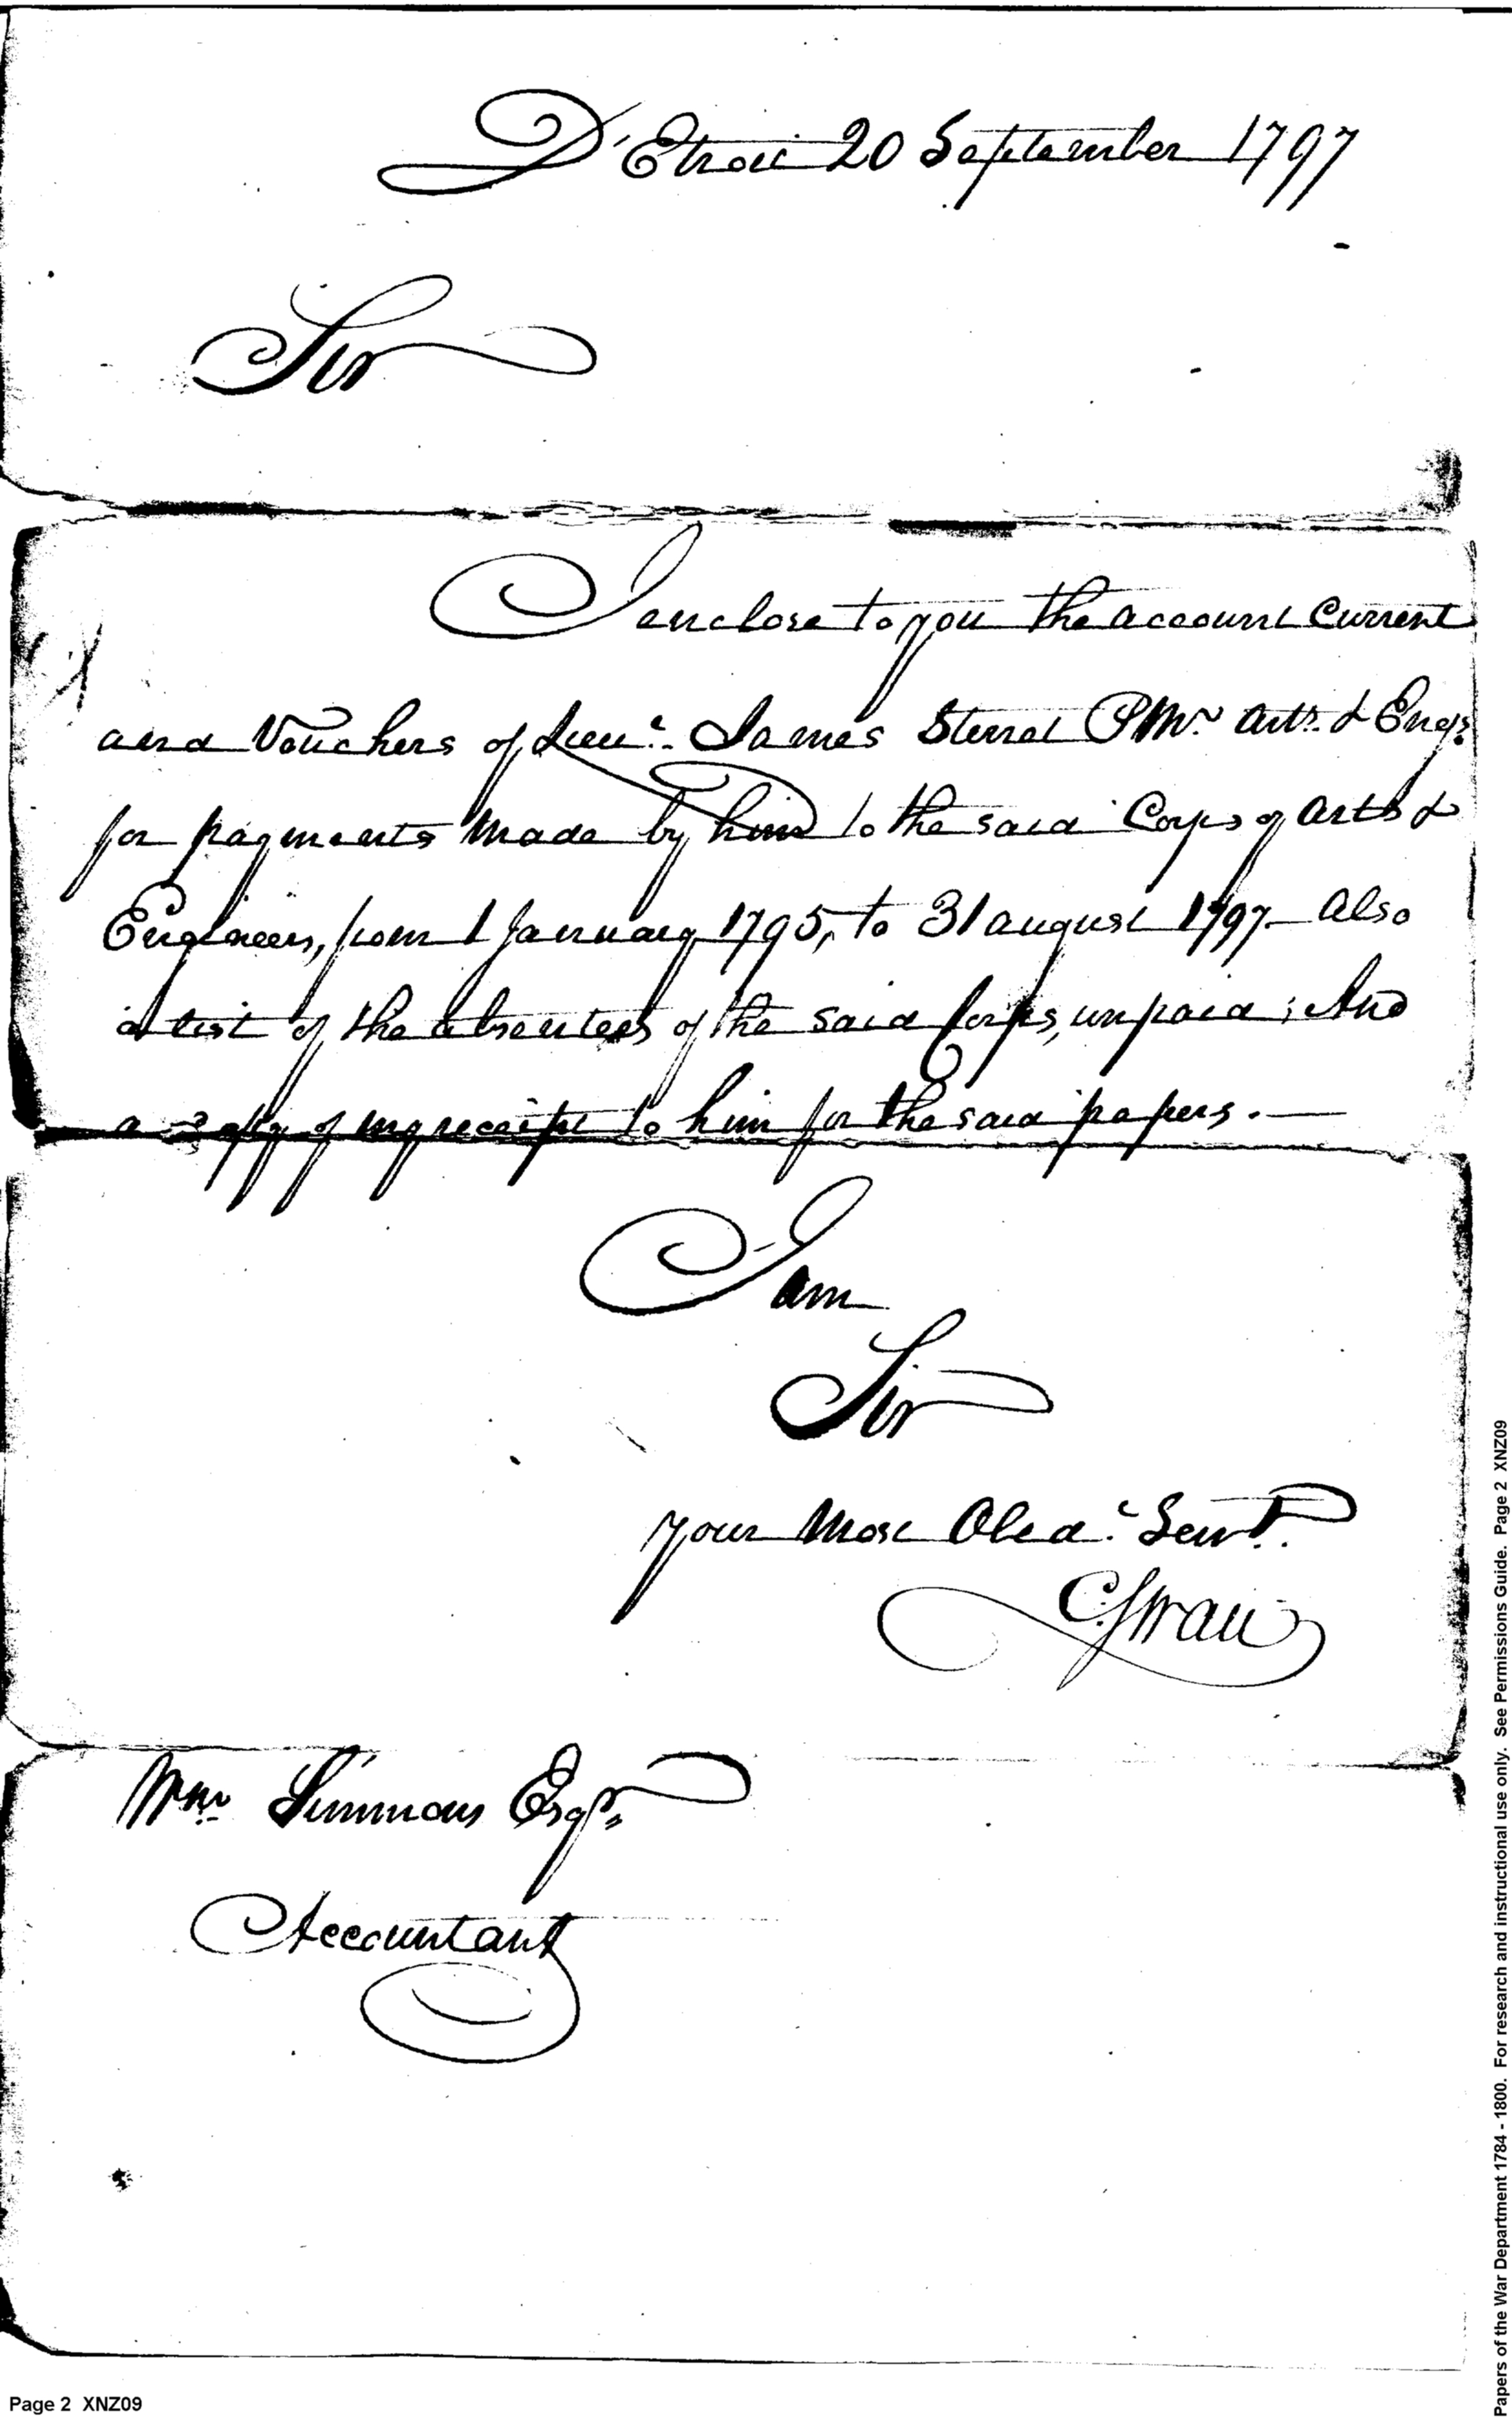 D'Etroit 20 September 1797
Sir
I enclose to you the account Current
and Vouchers of Lieut. James Sterret PMr. Arts. & Engs.
for payments made by him to the said Corps of Arts &
Engineers, from 1 January 1795, to 31 august 1797. Also
a list of the absentees of the said Corps, unpaid; And
a copy of my receipt to him for the said papers.—
I am
Sir
your Most Obedt. Servt.
C. Swan
Wm. Simmons Esqr.
Accountant
Page 2 XNZ09
Papers of the War Department 1784 - 1800. For research and instructional use only. See Permissions Guide. Page 2 XNZ09